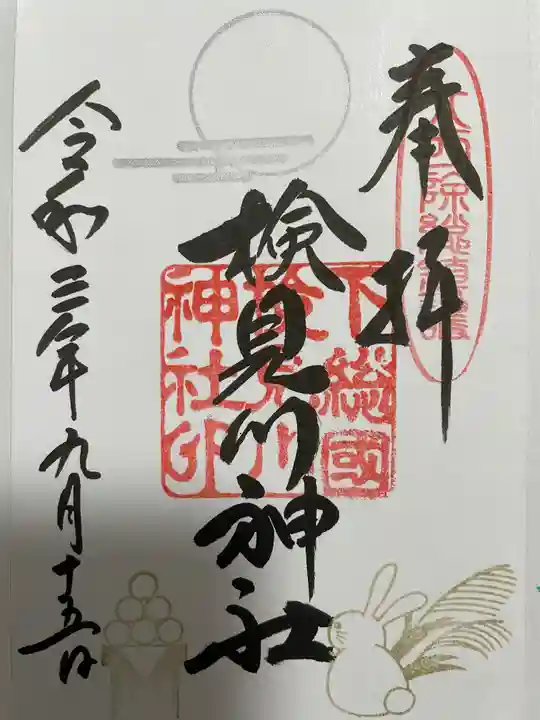 奉拝
検見川神社
下総國
検見川
神社印
令和三年九月十五日